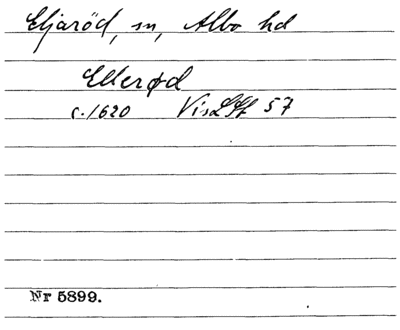 Eljaröd, sn, Albo hd
Ellerød
c. 1620 VisLSt 57
Nr 5899.